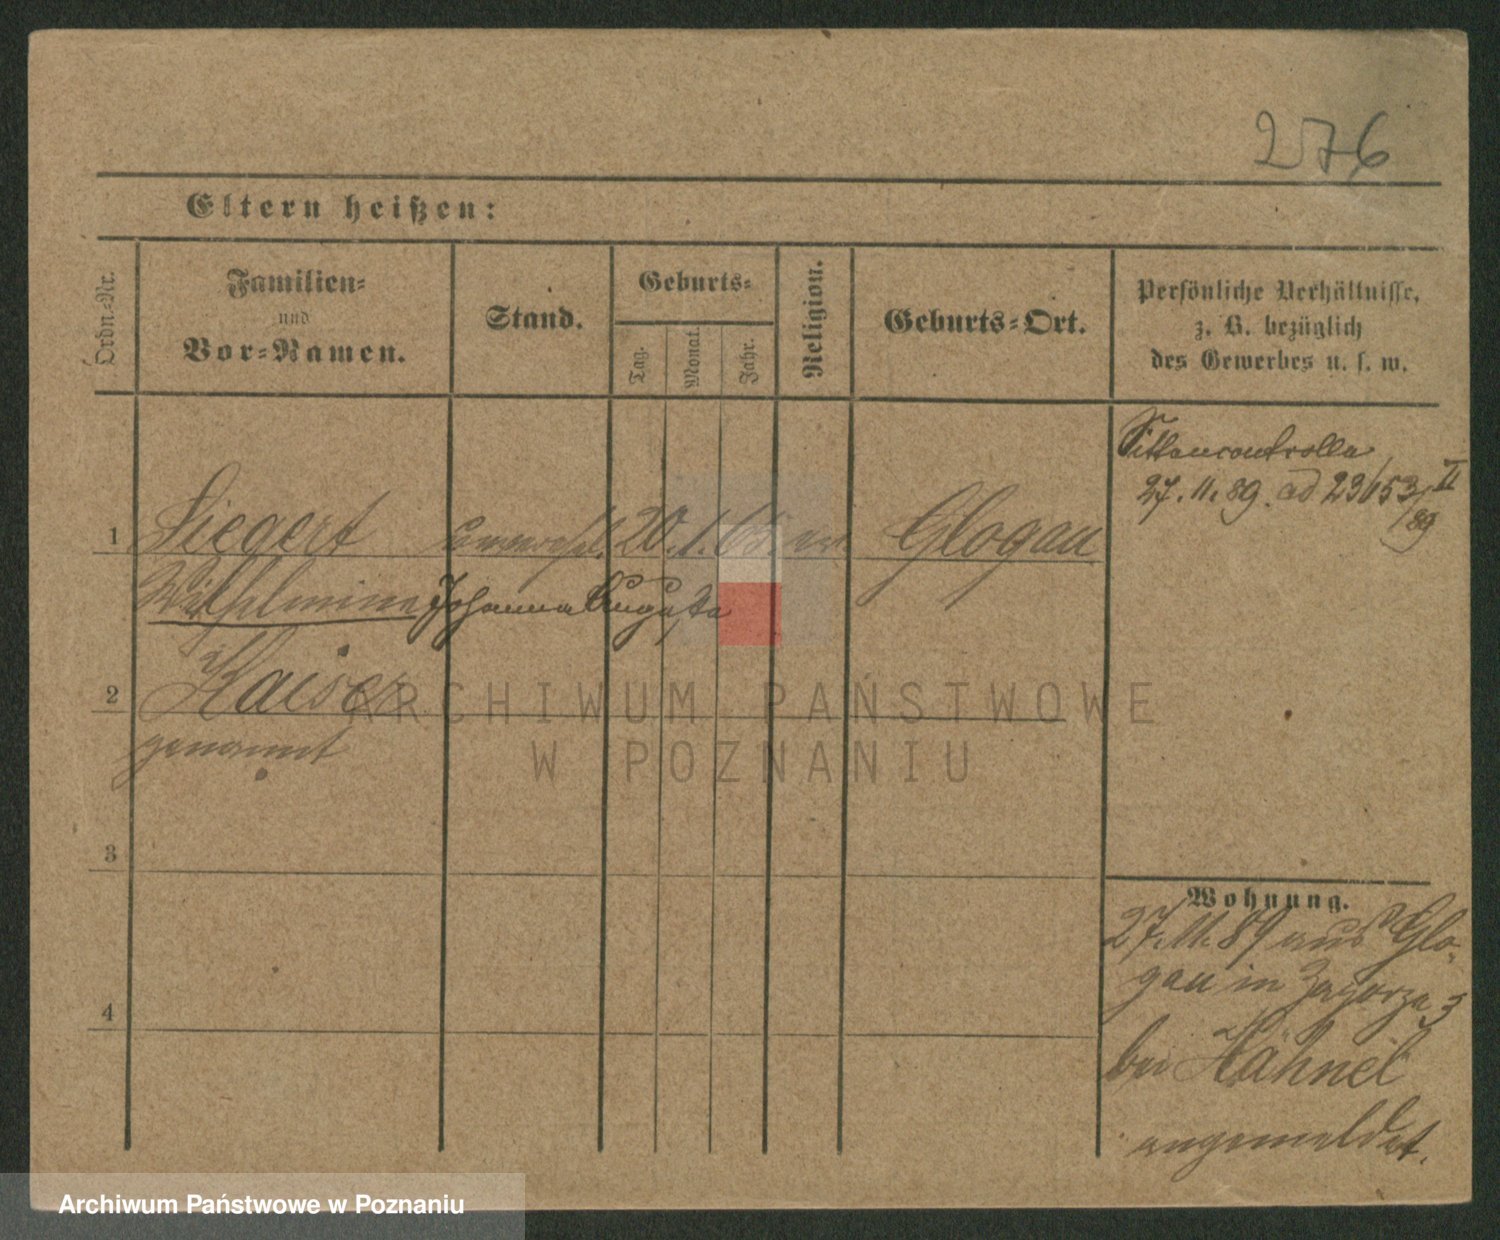 276
Eltern heißen:
Ordn.-Nr.
Familien-
und
Vor-Namen.
Stand.
Geburts-
Tag.
Monat.
Jahr.
Religion.
Geburts-Ort.
Persönliche Verhältnisse,
z. B. bezüglich
des Gewerbes u. s. w.
Sittencontrolle
27. 11. 89. ad 23653/89 II
1 Siegert 20. 1. 68 ev Glogau
Wilhelmine Johanna Auguste
2 Kaiser
genannt
3
4
Wohnung.
27. 11. 89 aus Glo-
gau in Zagorze 3
bei Hähnel
angemeldet.
ARCHIWUM PAŃSTWOWE
W POZNANIU
Archiwum Państwowe w Poznaniu